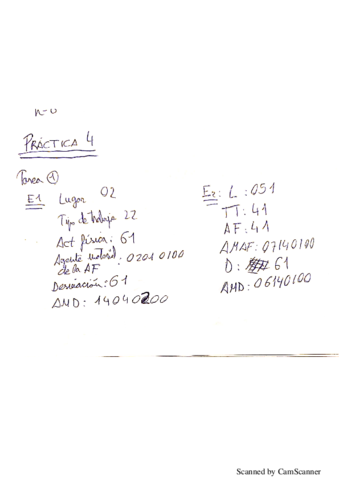 PRÁCTICA 4
Tarea 1
E1 Lugar 02
Tipo de trabajo 22
Act física: 61
Agente material de la AF: 0201 0100
Desviación: 61
AMD: 14040200
E2: L: 051
TT: 41
AF: 41
AMAF: 07140100
D: 61
AMD: 06140100
Scanned by CamScanner